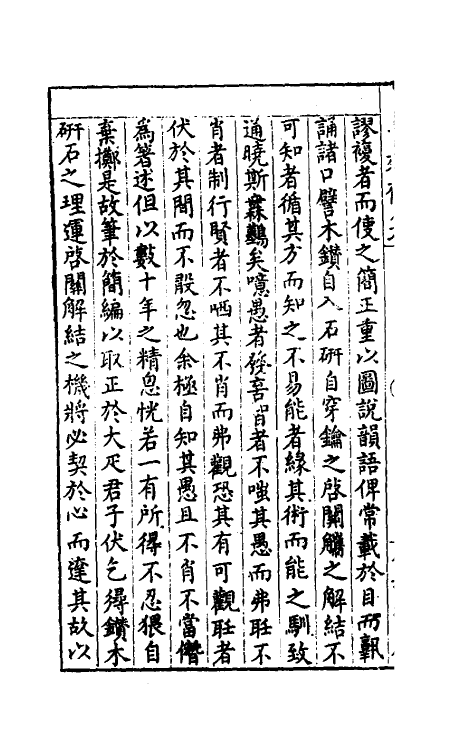 謬複者而使之簡正重以圖說韻語俾常載於目而輒
誦諸口譬木鑽自入石硏自穿鑰之啓關觿之解結不
可知者循其方而知之不易能者緣其術而能之馴致
通曉斯
矣噫愚者發言肖者不嗤其愚而弗聽不
肖者制行賢者不哂其不肖而弗觀恐其有可觀聽者
伏於其間而不敢忽也余極自知其愚且不肖不當僭
爲著述但以數十年之精思恍若一有所得不忍猥自
棄擲是故筆於簡編以取正於大疋君子伏乞得鑽木
硏石之理運啓關解結之機將必契於心而達其故以